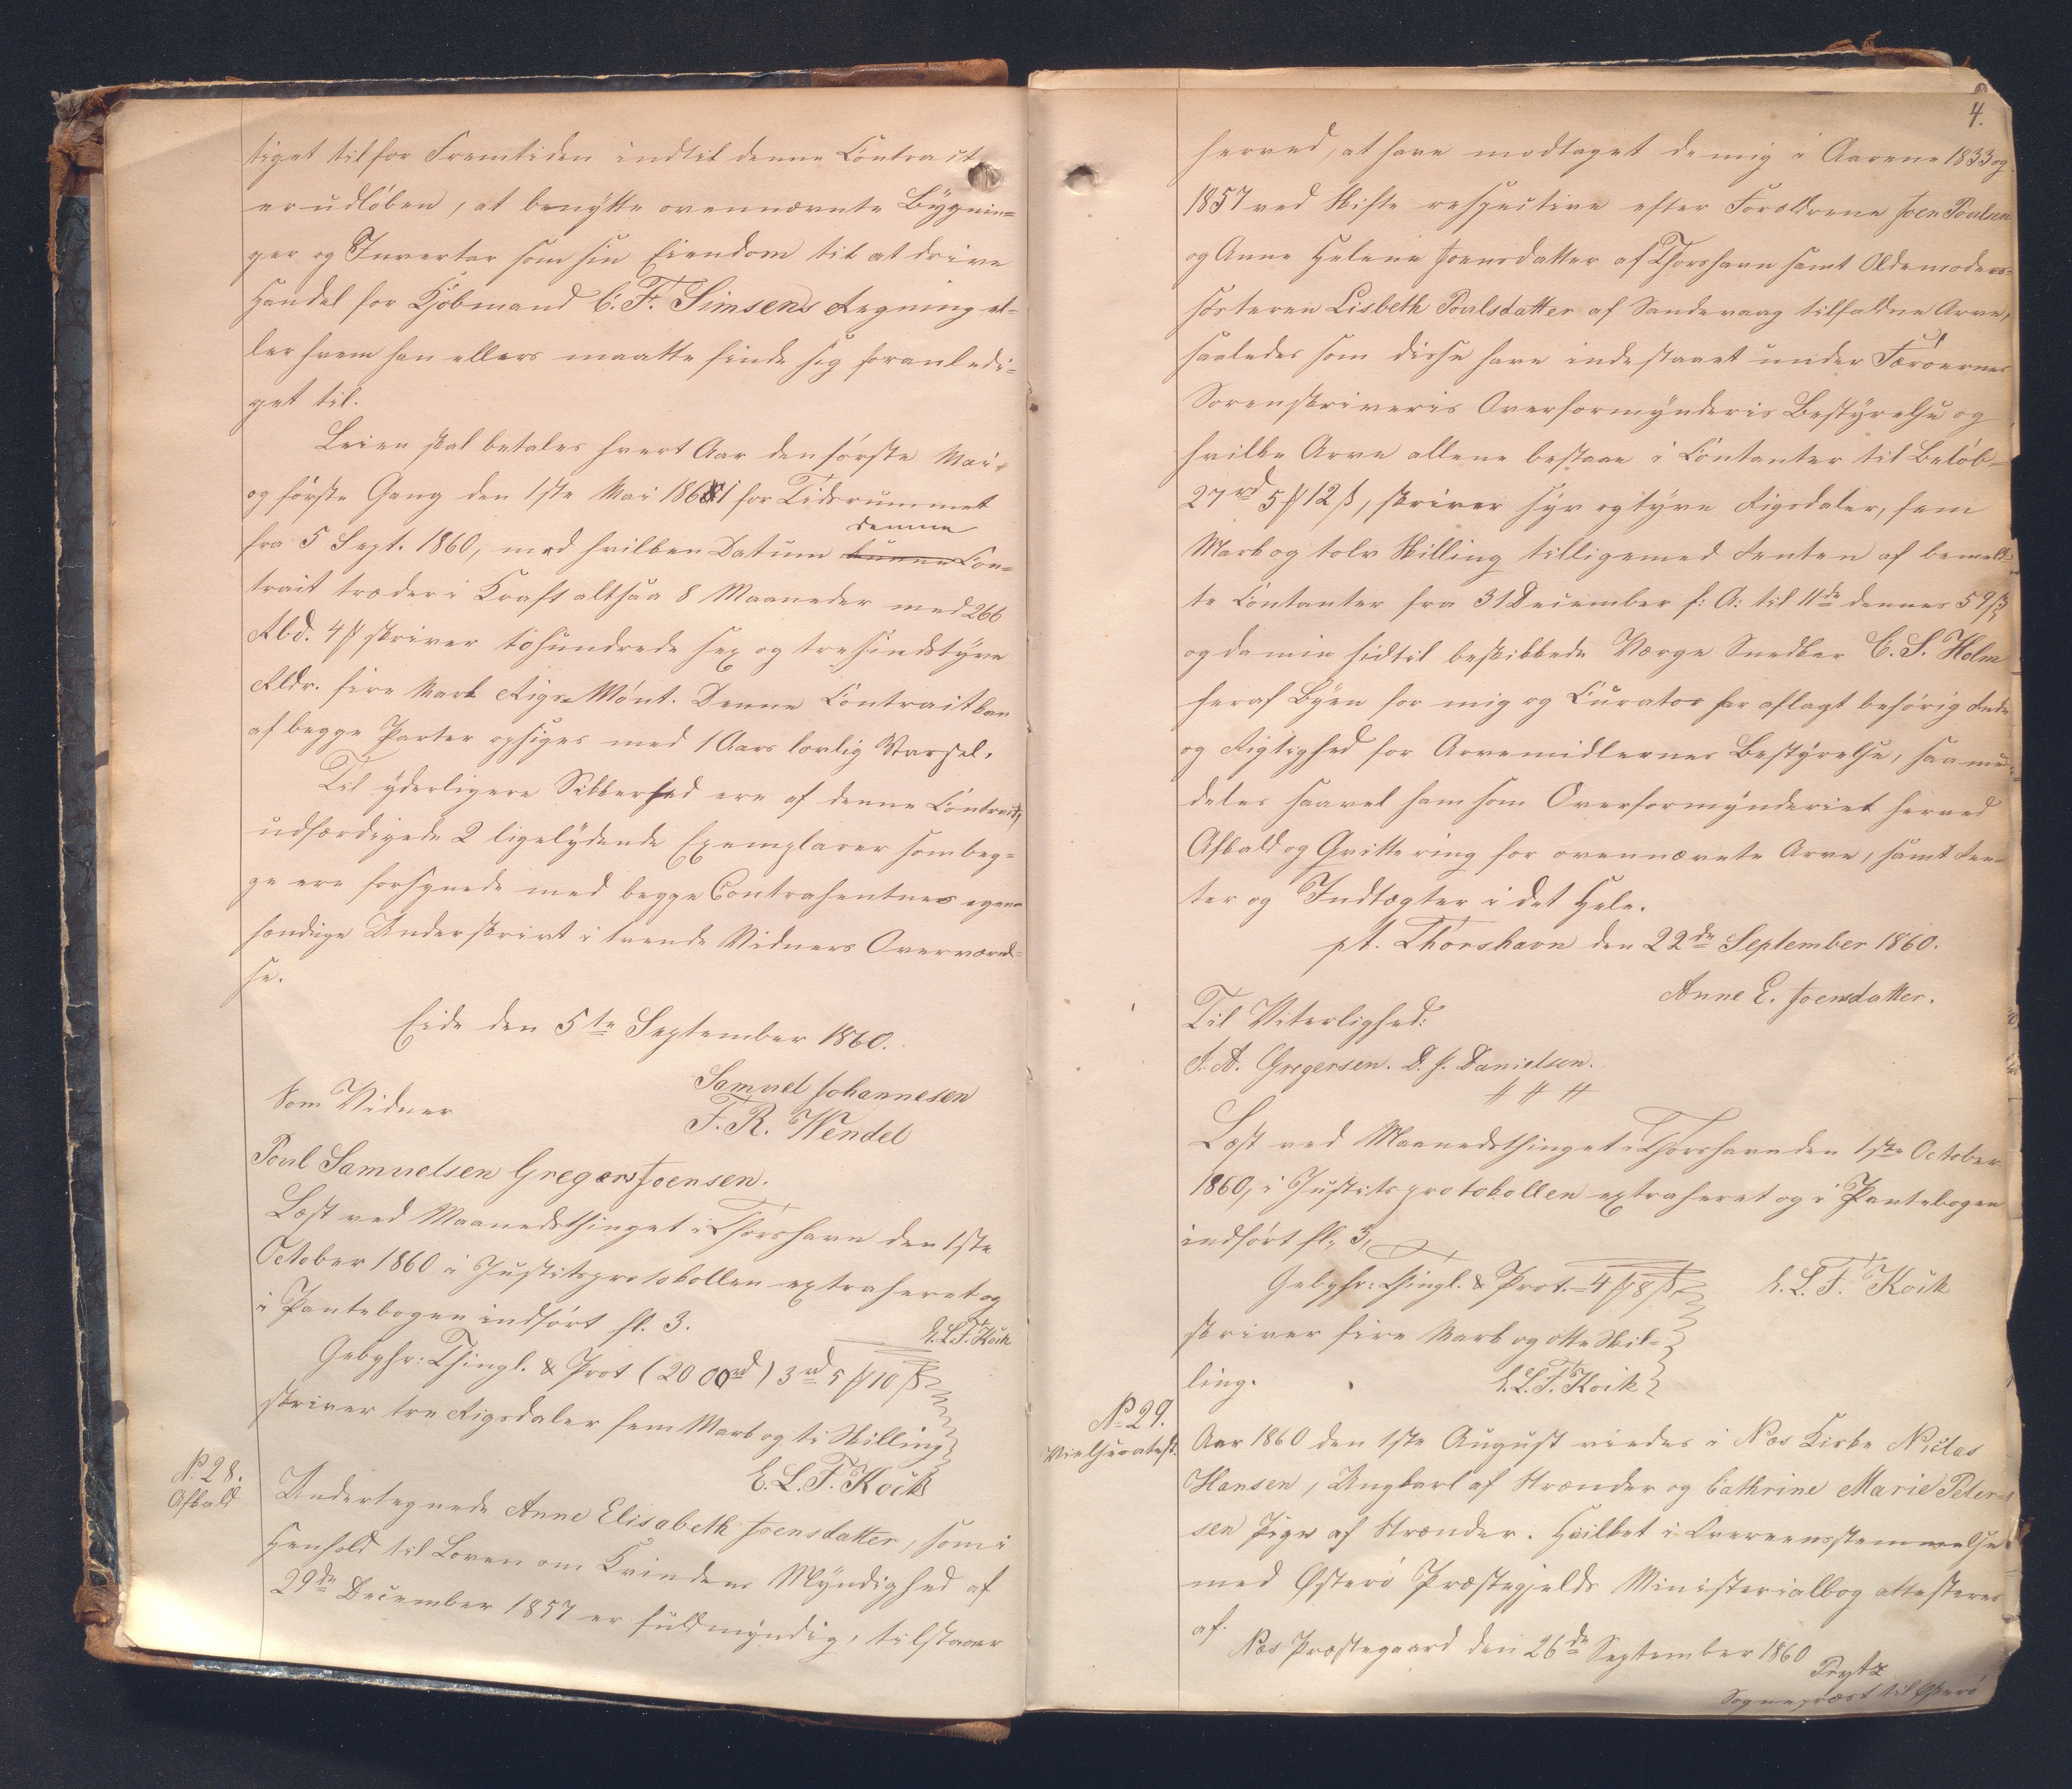 tiget til for Fremtiden indtil denne Contract
er udløben, at benytte ovennævnte Bygnin=
ger og Inventar som sin Eiendom til at drive
Handel for Kjøbmand C. F. Simsens Regning el=
ler hvem han ellers maatte finde sig foranledi=
get til.
Leien skal betales hvert Aar den første Mai
og første Gang den 1ste Mai 1861 for Tidsrummet
fra 5 Sept. 1860, med hvilken Datum denne Con=
tract træder i Kraft altsaa 8 Maaneder med 266
Rbd. 4 ꟗ skriver tohundrede sex og tresindstyve
Rldr. fire Mark Rigs=Mønt. Denne Contract kan
af begge Parter opsiges med 1 Aars lovlig Varsel.
Til yderligere Sikkerhed ere af denne Contract
udfærdigede 2 ligelydende Exemplarer som beg=
ge ere forsynede med begge Contrahentnes egen=
hændige Underskrivt i tvende Vidners Overværel=
se.
Eide den 5te September 1860.
Samuel Johannesen
Som Vidner
F. R. Wendel
Poul Samuelsen Gregers Joensen.
Læst ved Maanedsthinget i Thorshavn den 1ste
October 1860 i Justitsprotokollen extraheret og
i Pantebogen indført fl. 3.
E. L. F. Kock
Gebyhr: Thingl. & Prot (2000 rd) 3 rd 5 ꟗ 10 ß
skriver tre Rigsdaler fem Mark og ti Skilling
E. L. F. Kock
N. 28.
Afkald
Undertegnede Anne Elisabeth Joensdatter, som i
Henhold til Loven om Kvindens Myndighed af
29de December 1857 er fuldmyndig, tilstaaer
4.
herved, at have modtaget de mig i Aarene 1833 og
1857 ved Skifte respective efter Forældrene Joen Poulsen
og Anne Helene Joensdatter af Thorshavn samt Oldemoders=
søsteren Lisbeth Poulsdatter af Sandevaag tilfaldne Arve,
saaledes som disse have indestaaet under Færøernes
Sorenskriveris Overformynderis Bestyrelse og
hvilke Arve allene bestaae i Contanter til Beløb=
27 rd 5 ꟗ 12 ß, skriver syv og tyve Rigsdaler, fem
Mark og tolv Skilling tilligemed Renten af bemeld=
te Contanter fra 31 December f: A: til 11de dennes 59 ß
og da min hidtil beskikkede Værge Snedker C. S. Holm
her af Byen for mig og Curator har aflagt behørig Rede
og Rigtighed for Arvemidlernes Bestyrelse, saa med=
deles saavel ham som Overformynderiet herved
Afkald og Qvittering for ovennævnte Arve, samt Ren=
ter og Indtægter i det Hele.
pt. Thorshavn den 22de September 1860.
Anne E. Joensdatter.
Til Viterlighed:
J. A. Gregersen. D. J. Danielsen.
Læst ved Maanedsthinget i Thorshavn den 1ste October
1860, i Justitsprotokollen extraheret og i Pantebogen
indført fl. 3,
Gebyhr: Thingl. & Prot. = 4 ꟗ 8 ß
E. L. F. Kock
skriver fire Mark og otte Skil=
ling.
E. L. F. Kock
N. 29.
Vielsesattest.
Aar 1860 den 1ste August viedes i Næs Kirke Niclas
Hansen, Ungkarl af Strænder og Cathrine Marie Peter=
sen Pige af Strænder. Hvilket i Overeensstemmelse
med Østerø Præstegjelds Ministerialbog attesteres
af.
Næs Præstegaard den 26de September 1860
Prytz
Sognepræst til Østerø